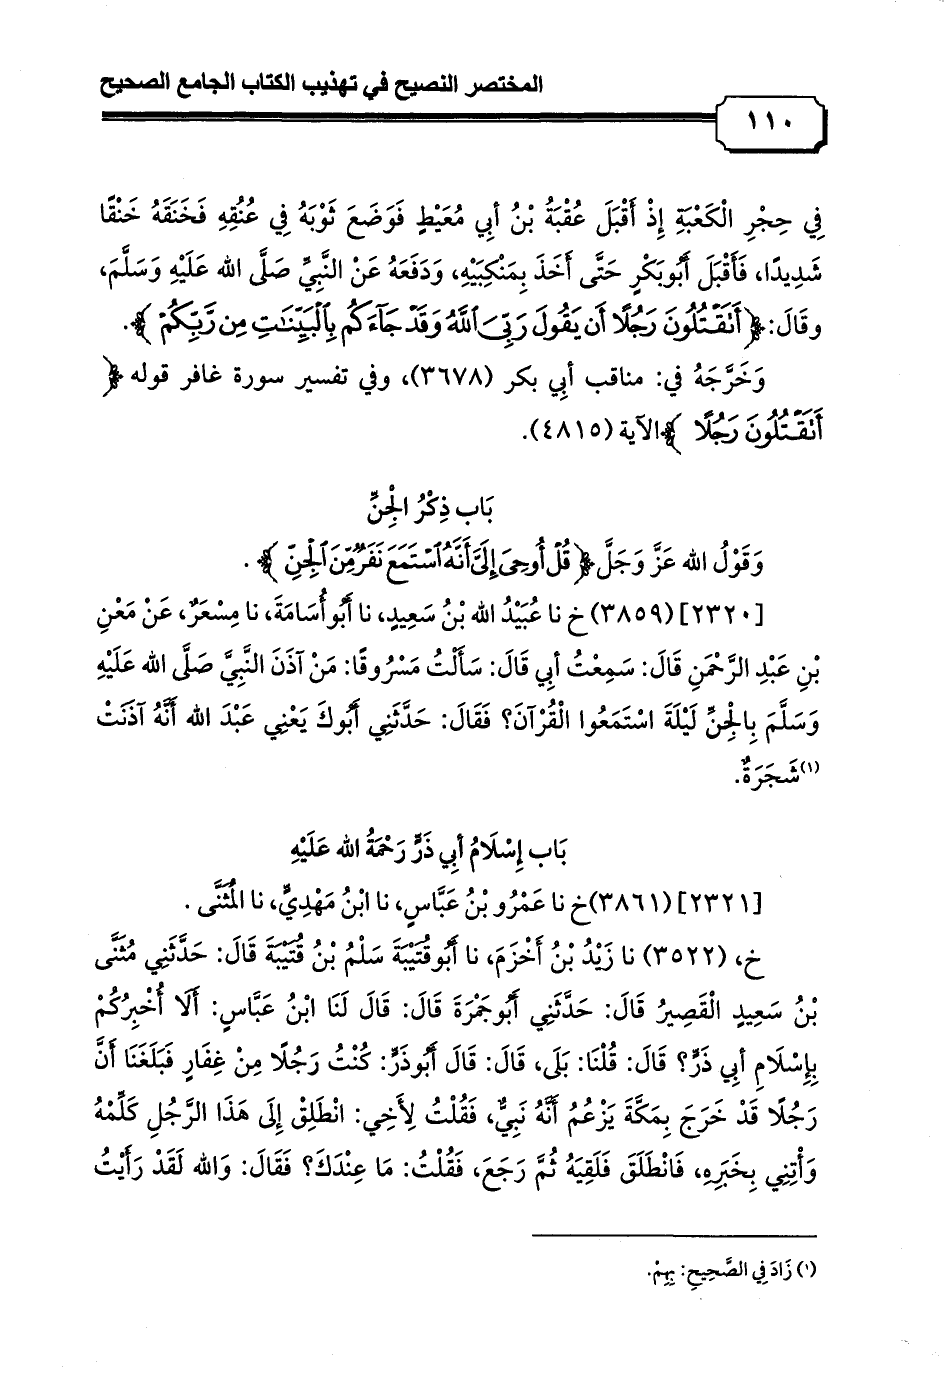 المختصر النصيح في تهذيب الكتاب الجامع الصحيح
١١٠
فِي حِجْرِ الْكَعْبَةِ إِذْ أَقْبَلَ عُقْبَةُ بْنُ أبِي مُعَيْطٍ فَوَضَعَ ثَوْبَهُ فِي عُنُقِهِ فَخَنَقَهُ خَنْقًا
شَدِيدًا، فَأَقْبَلَ أَبُوبَكْرٍ حَتَّى أَخَذَ بِمَنْكِبَيْهِ، وَدَفَعَهُ عَنْ النَّبِيِّ صَلَّى الله عَلَيْهِ وَسَلَّمَ،
وقَالَ: ﴿أَتَقْتُلُونَ رَجُلًا أَن يَقُولَ رَبِّيَ ٱللَّهُ وَقَدْ جَآءَكُم بِٱلْبَيِّنَٰتِ مِن رَّبِّكُمْ﴾.
وَخَرَّجَهُ فِي: مناقب أبي بكر (٣٦٧٨)، وفي تفسير سورة غافر قوله ﴿
أَتَقْتُلُونَ رَجُلًا ﴾الآية (٤٨١٥).
بَاب ذِكْرُ الْجِنِّ
وَقَوْلُ الله عَزَّ وَجَلَّ ﴿قُلْ أُوحِىَ إِلَىَّ أَنَّهُ ٱسْتَمَعَ نَفَرٌ مِّنَ ٱلْجِنِّ﴾ .
[٢٣٢٠] (٣٨٥٩) خ نا عُبَيْدُ الله بْنُ سَعِيدٍ، نا أَبُو أُسَامَةَ، نا مِسْعَرٌ، عَنْ مَعْنِ
بْنِ عَبْدِ الرَّحْمَنِ قَالَ: سَمِعْتُ أبِي قَالَ: سَأَلْتُ مَسْرُوقًا: مَنْ آذَنَ النَّبِيَّ صَلَّى الله عَلَيْهِ
وَسَلَّمَ بِالْجِنِّ لَيْلَةَ اسْتَمَعُوا الْقُرْآنَ؟ فَقَالَ: حَدَّثَنِي أَبُوكَ يَعْنِي عَبْدَ الله أَنَّهُ آذَنَتْ
(١)شَجَرَةٌ.
بَاب إِسْلَامُ أبِي ذَرٍّ رَحْمَةُ الله عَلَيْهِ
[٢٣٢١] (٣٨٦١)خ نا عَمْرُو بْنُ عَبَّاسٍ، نا ابْنُ مَهْدِيٍّ، نا الْمُثَنَّى .
خ، (٣٥٢٢) نا زَيْدُ بْنُ أَخْزَمَ، نا أَبُوقُتَيْبَةَ سَلْمُ بْنُ قُتَيْبَةَ قَالَ: حَدَّثَنِي مُثَنَّى
بْنُ سَعِيدٍ الْقَصِيرُ قَالَ: حَدَّثَنِي أَبُوجَمْرَةَ قَالَ: قَالَ لَنَا ابْنُ عَبَّاسٍ: أَلَا أُخْبِرُكُمْ
بِإِسْلَامِ أبِي ذَرٍّ؟ قَالَ: قُلْنَا: بَلَى، قَالَ: قَالَ أَبُوذَرٍّ: كُنْتُ رَجُلًا مِنْ غِفَارٍ فَبَلَغَنَا أَنَّ
رَجُلًا قَدْ خَرَجَ بِمَكَّةَ يَزْعُمُ أَنَّهُ نَبِيٌّ، فَقُلْتُ لِأَخِي: انْطَلِقْ إِلَى هَذَا الرَّجُلِ كَلِّمْهُ
وَأْتِنِي بِخَبَرِهِ، فَانْطَلَقَ فَلَقِيَهُ ثُمَّ رَجَعَ، فَقُلْتُ: مَا عِنْدَكَ؟ فَقَالَ: وَالله لَقَدْ رَأَيْتُ
(١) زَادَ فِي الصَّحِيحِ: بِهِمْ.